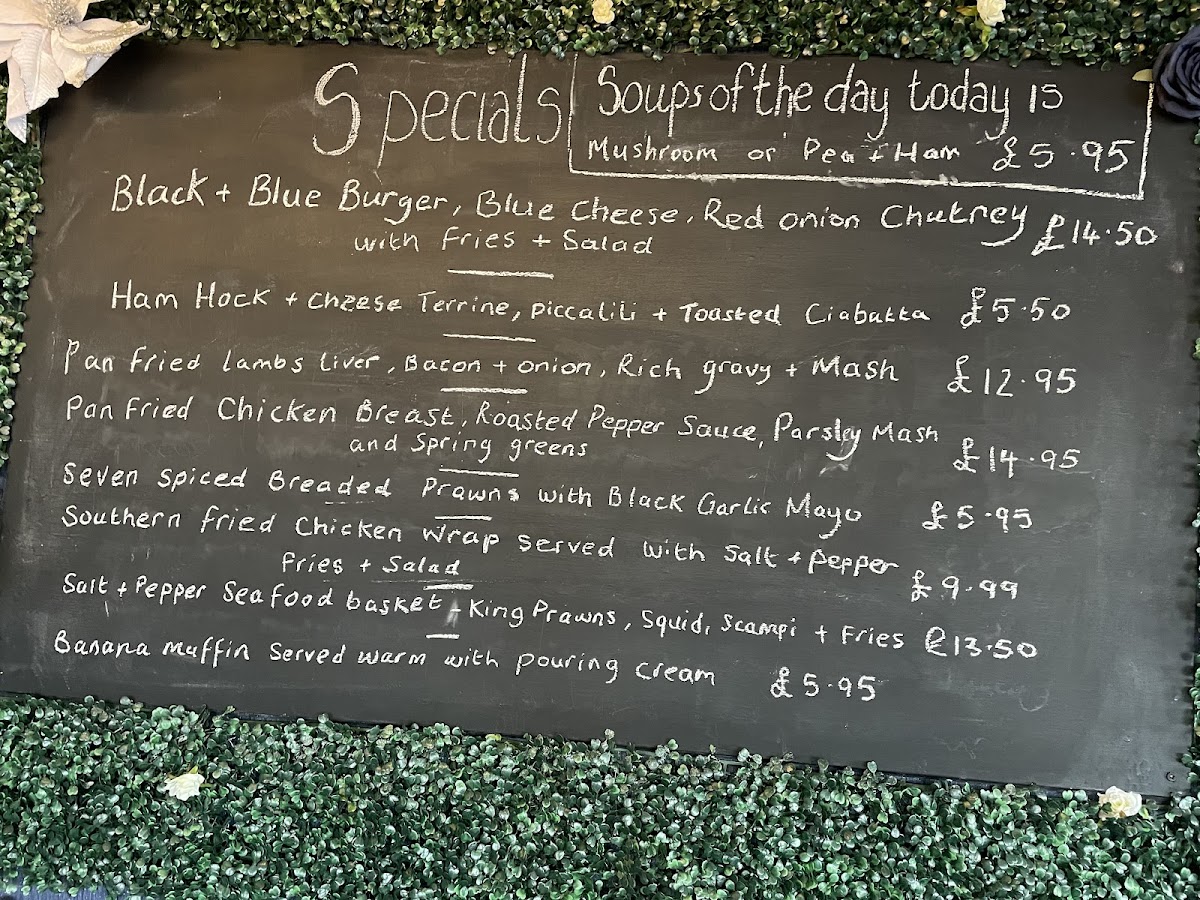 Specials
Soups of the day today is
Mushroom or Pea + Ham £5.95
Black + Blue Burger, Blue Cheese, Red onion Chutney £14.50
with Fries + Salad
Ham Hock + Cheese Terrine, piccalili + Toasted Ciabatta £5.50
Pan Fried lambs liver, Bacon + onion, Rich gravy + Mash £12.95
Pan Fried Chicken Breast, Roasted Pepper Sauce, Parsley Mash
and Spring greens £14.95
Seven Spiced Breaded Prawns with Black Garlic Mayo £5.95
Southern fried Chicken Wrap served with Salt + pepper
fries + Salad £9.99
Salt + Pepper Seafood basket - King Prawns, Squid, Scampi + Fries £13.50
Banana Muffin Served warm with pouring cream £5.95